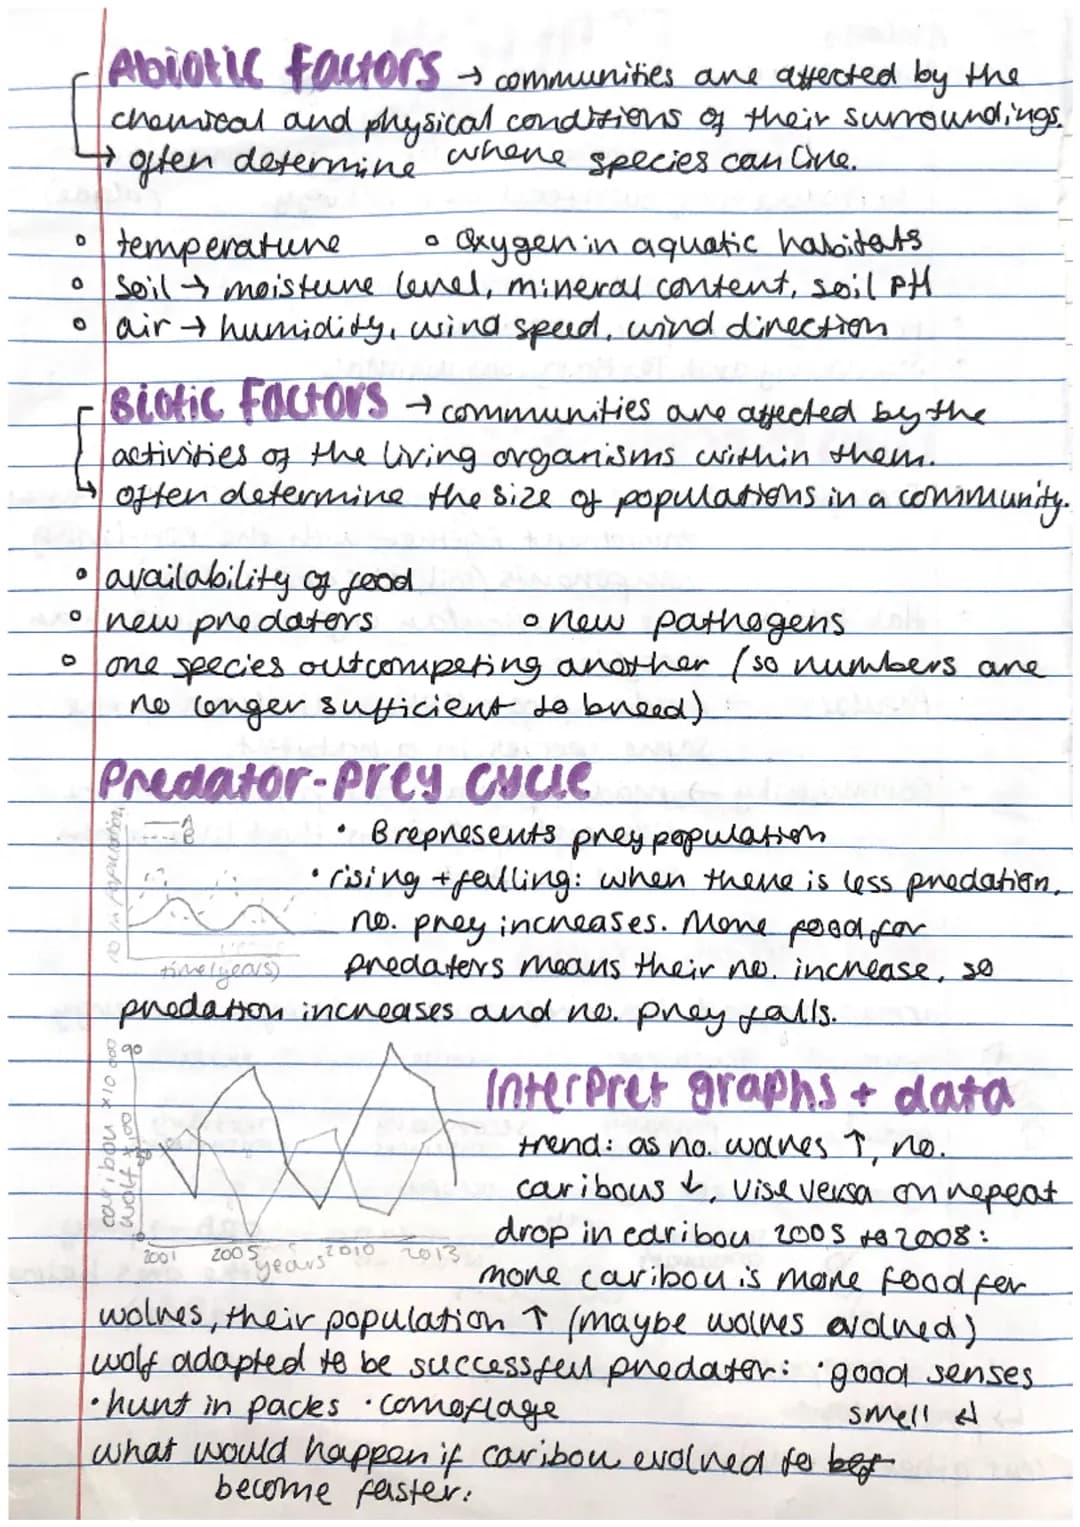 Abiotic factors → communities are affected by the
chemical and physical conditions of their surroundings.
→ often determine where species can live.
• temperature • Oxygen in aquatic habitats
• soil → moisture level, mineral content, soil pH
• air → humidity, wind speed, wind direction
Biotic Factors → communities are affected by the
activities of the living organisms within them.
↳ often determine the size of populations in a community.
• availability of food
• new predators • new pathogens
• one species outcompeting another (so numbers are
no longer sufficient to breed)
Predator-Prey cycle
A
B
no. in population
time (years)
• B represents prey population
• rising + falling: when there is less predation,
no. prey increases. More food for
predators means their no. increase, so
predation increases and no. prey falls.
90
caribou x10 000
wolf x100
2001 2005 2010 2013
years
Interpret graphs + data
trend: as no. wolves ↑, no.
caribous ↓, vise versa on repeat
drop in caribou 2005 to 2008:
more caribou is more food for
wolves, their population ↑ (maybe wolves evolved)
wolf adapted to be successful predator: • good senses
• hunt in packs • camoflage smell ↲
what would happen if caribou evolved to
become faster: